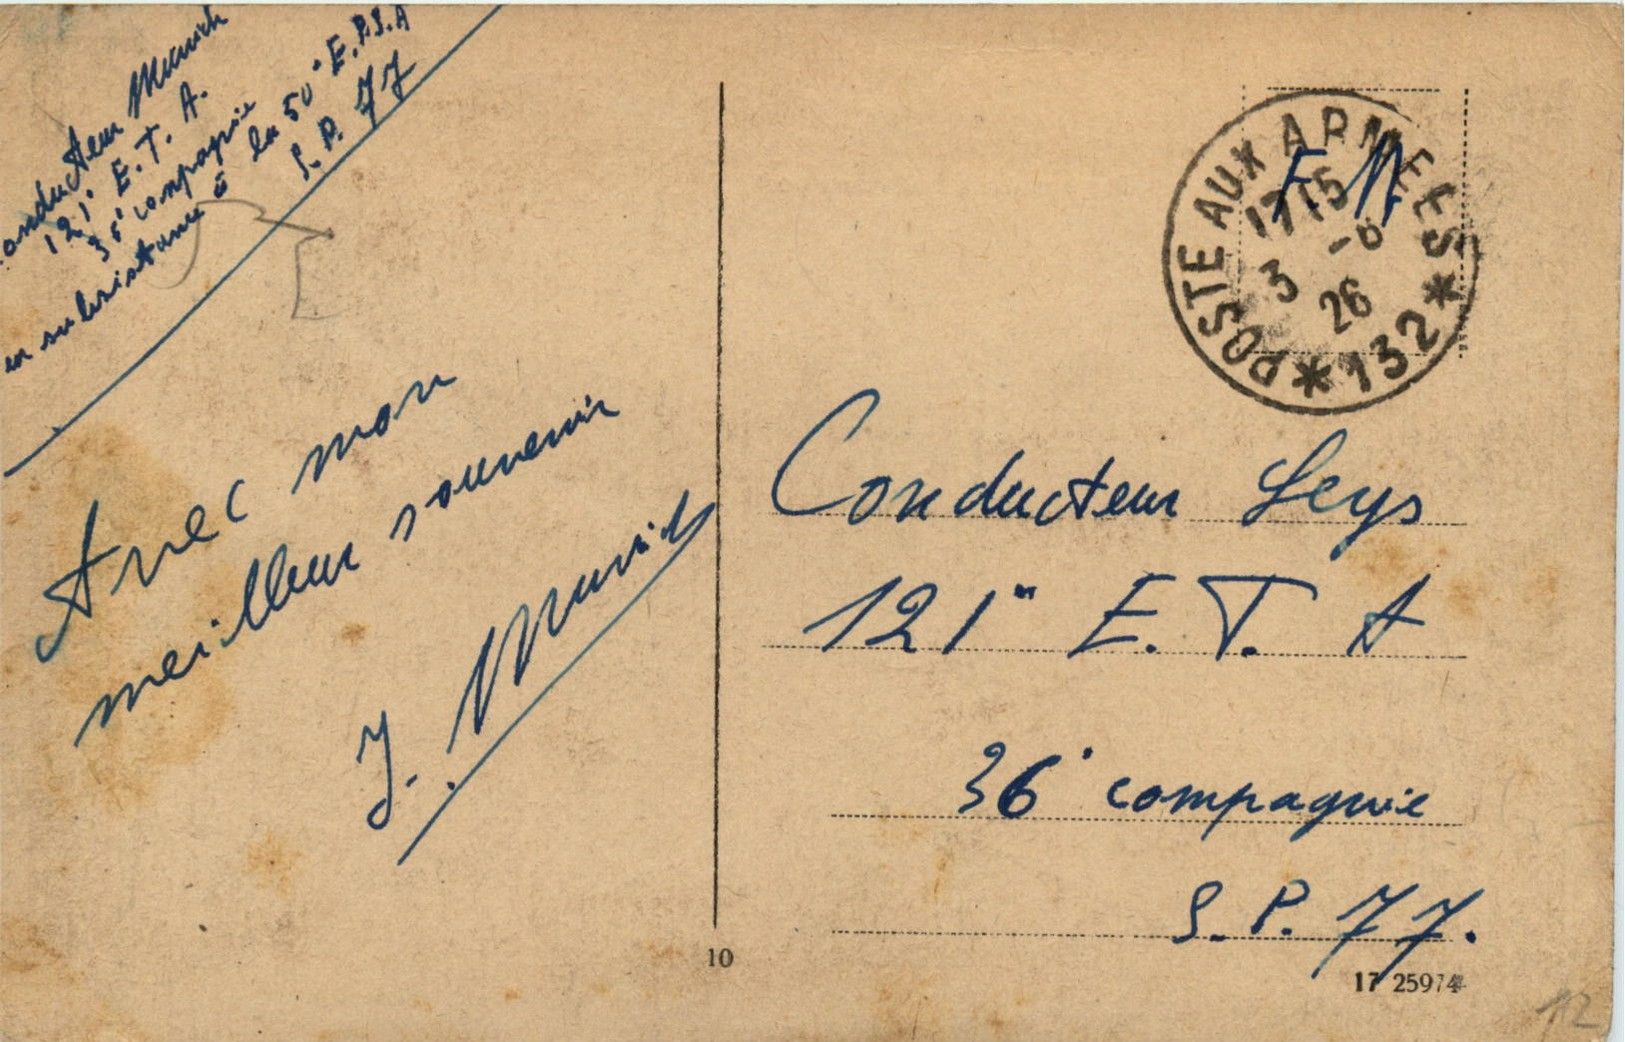 Conducteur
121e E. T. A.
36e compagnie
en subsistance à la 50e E.R.S.A
S. P. 77
Avec mon
meilleur souvenir
J.
POSTE AUX ARMEES
* 132 *
1715
3 -6
26
F. M
Conducteur Leys
121e E. T. A
36e compagnie
S. P. 77.
10
17 25974
12